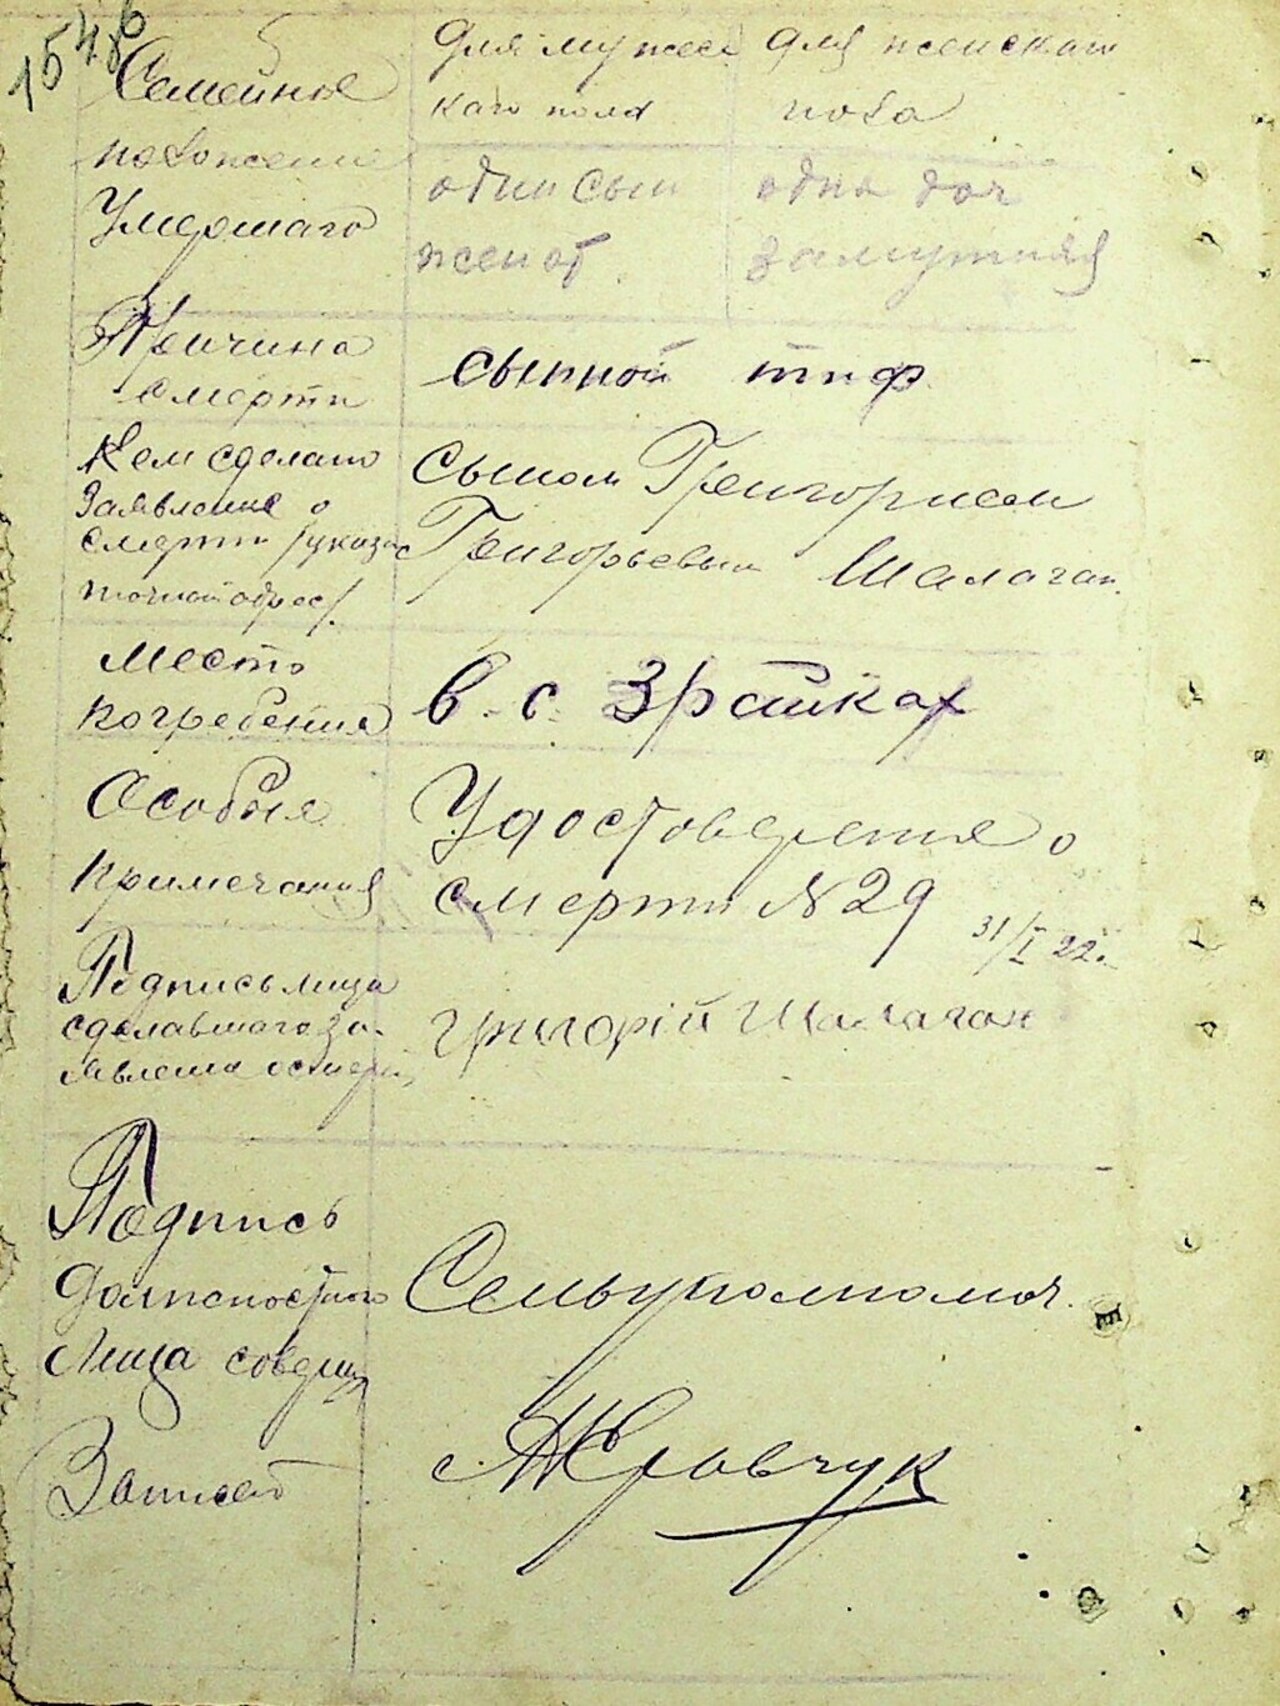 1546
Семейное
положение
Умершаго
Для мужес
каго пола
Для женскаго
пола
один сын
женат
одна доч
замужняя
Причина
смерти
сыпной тиф
Кем сделано
Заявление о
смерти /указа
точный адрес/.
Сыном Григорием
Григорьевым Шалаган.
Место
погребения
в. с. Зрайках
Особыя
примечания
Удостоверение о
смерти №29 31/I 22г.
Подпись лица
сделавшаго за-
явление о смерти
Григорій Шалаган
Подпись
Должностного
Лица соверш
Запись
Сельуполномоч.
Кравчук